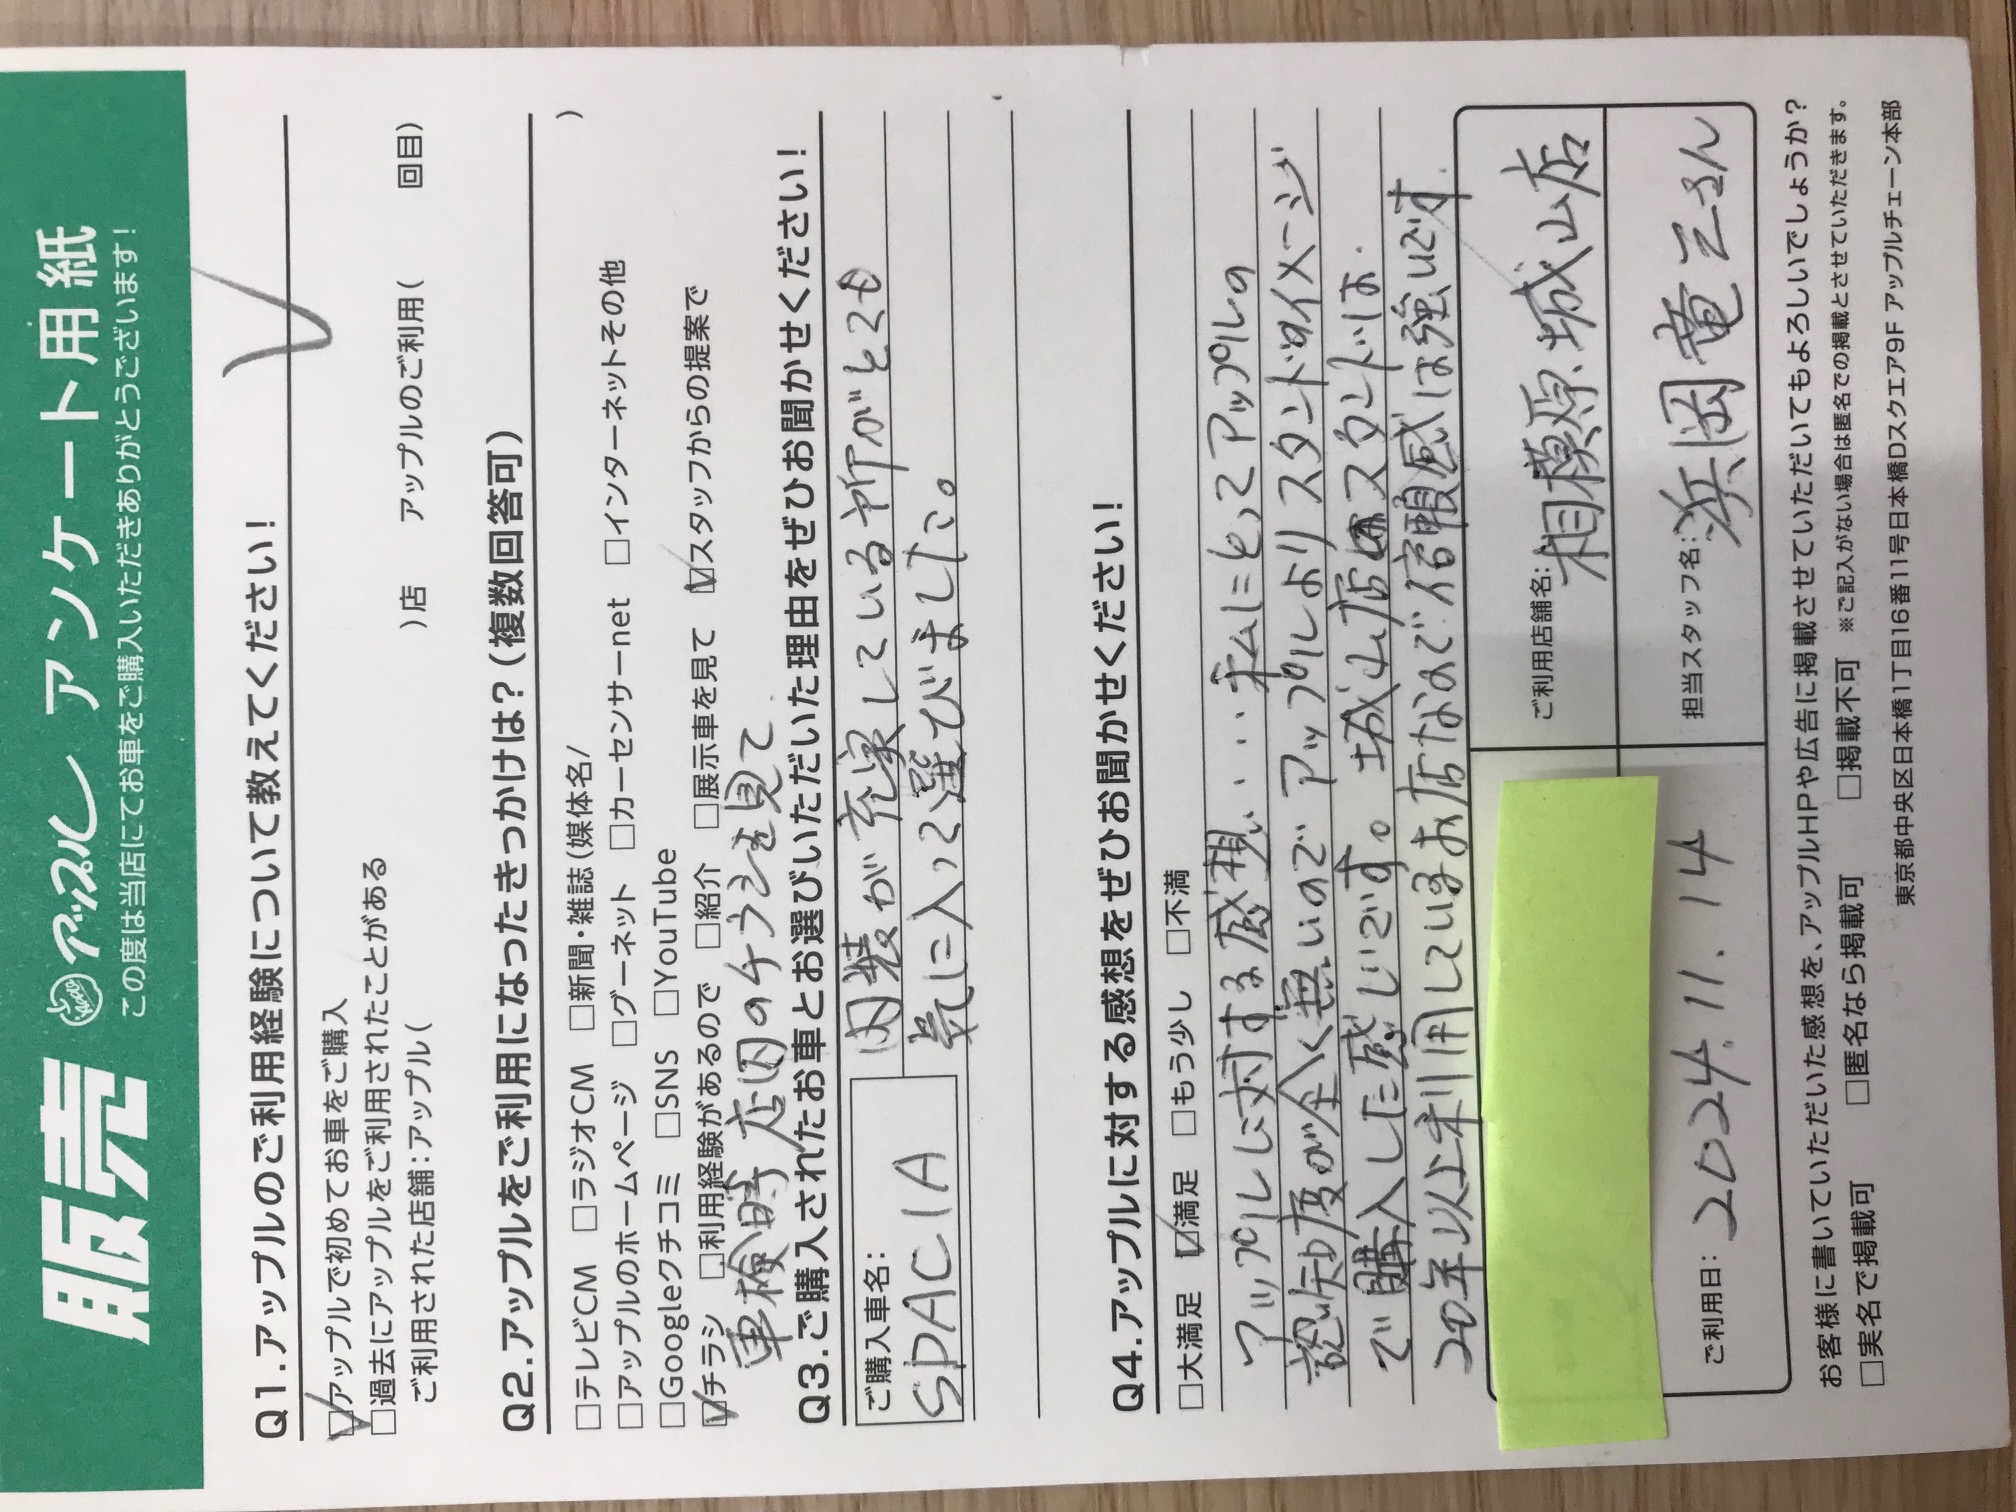 販売 アップル アンケート用紙
この度は当店にてお車をご購入いただきありがとうございます!
Q1.アップルのご利用経験について教えてください!
☑アップルで初めてお車をご購入
□過去にアップルをご利用されたことがある
ご利用された店舗:アップル( )店 アップルのご利用( 回目)
Q2.アップルをご利用になったきっかけは?(複数回答可)
□テレビCM □ラジオCM □新聞・雑誌(媒体名/ )
□アップルのホームページ □グーネット □カーセンサーnet □インターネットその他
□Googleクチコミ □SNS □YouTube
☑チラシ □利用経験があるので □紹介 □展示車を見て ☑スタッフからの提案で
車検時 店内のチラシを見て
Q3.ご購入されたお車とお選びいただいた理由をぜひお聞かせください!
ご購入車名:
SPACIA
内装が充実している所がとても
気に入って選びました。
Q4.アップルに対する感想をぜひお聞かせください!
□大満足 ☑満足 □もう少し □不満
アップルに対する感想・・・私にとってアップルの
認知度が全く無いのでアップルよりスタンドのイメージ
で購入した感じです。城山店はスタンドは
20年以上利用しているお店なので信頼感は強いです.
ご利用店舗名:
相模原城山店
担当スタッフ名:
浜岡竜三さん
ご利用日:
2024.11.14
お客様に書いていただいた感想を、アップルHPや広告に掲載させていただいてもよろしいでしょうか?
□実名で掲載可 □匿名なら掲載可 □掲載不可 ※ご記入がない場合は匿名での掲載とさせていただきます。
東京都中央区日本橋1丁目16番11号日本橋Dスクエア9F アップルチェーン本部